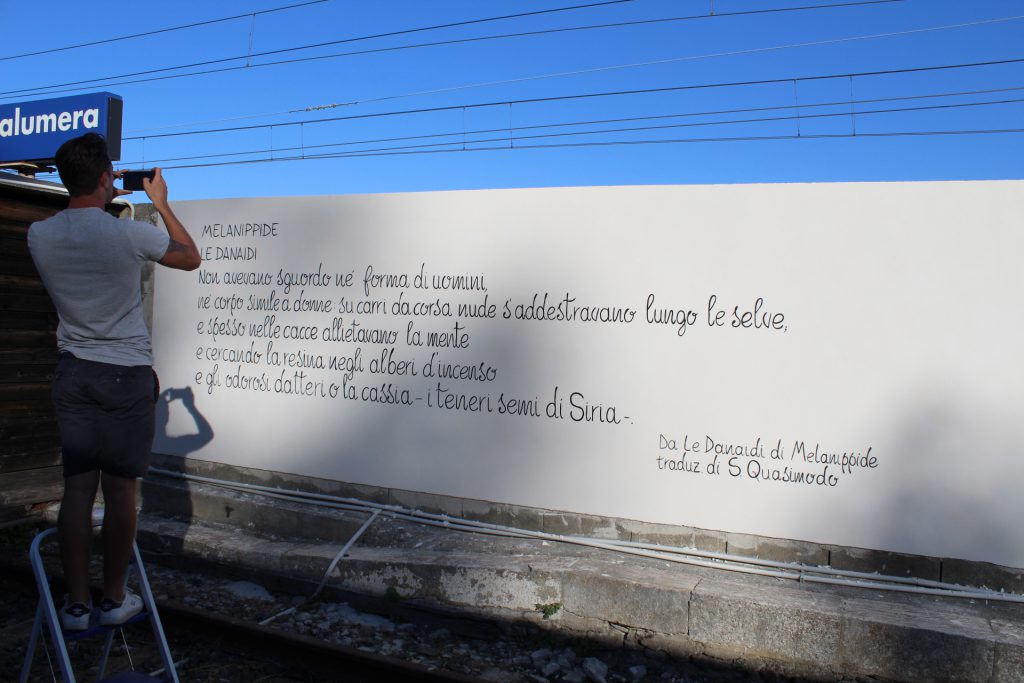 alumera
MELANIPPIDE
LE DANAIDI
Non avevano sguardo né forma di uomini,
né corpo simile a donne: su carri da corsa nude s'addestravano lungo le selve,
e spesso nelle cacce allietavano la mente
e cercando la resina negli alberi d'incenso
e gli odorosi datteri o la cassia - i teneri semi di Siria -.
Da Le Danaidi di Melanippide
traduz. di S. Quasimodo